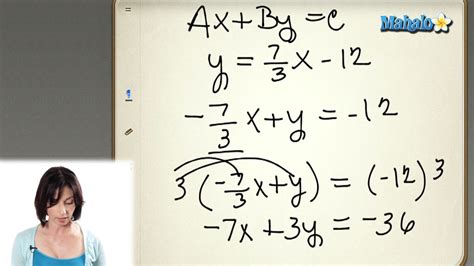 Mahalo
Ax+By=c
y=7/3x-12
-7/3x+y=-12
3(-7/3x+y)=(-12)3
-7x+3y=-36